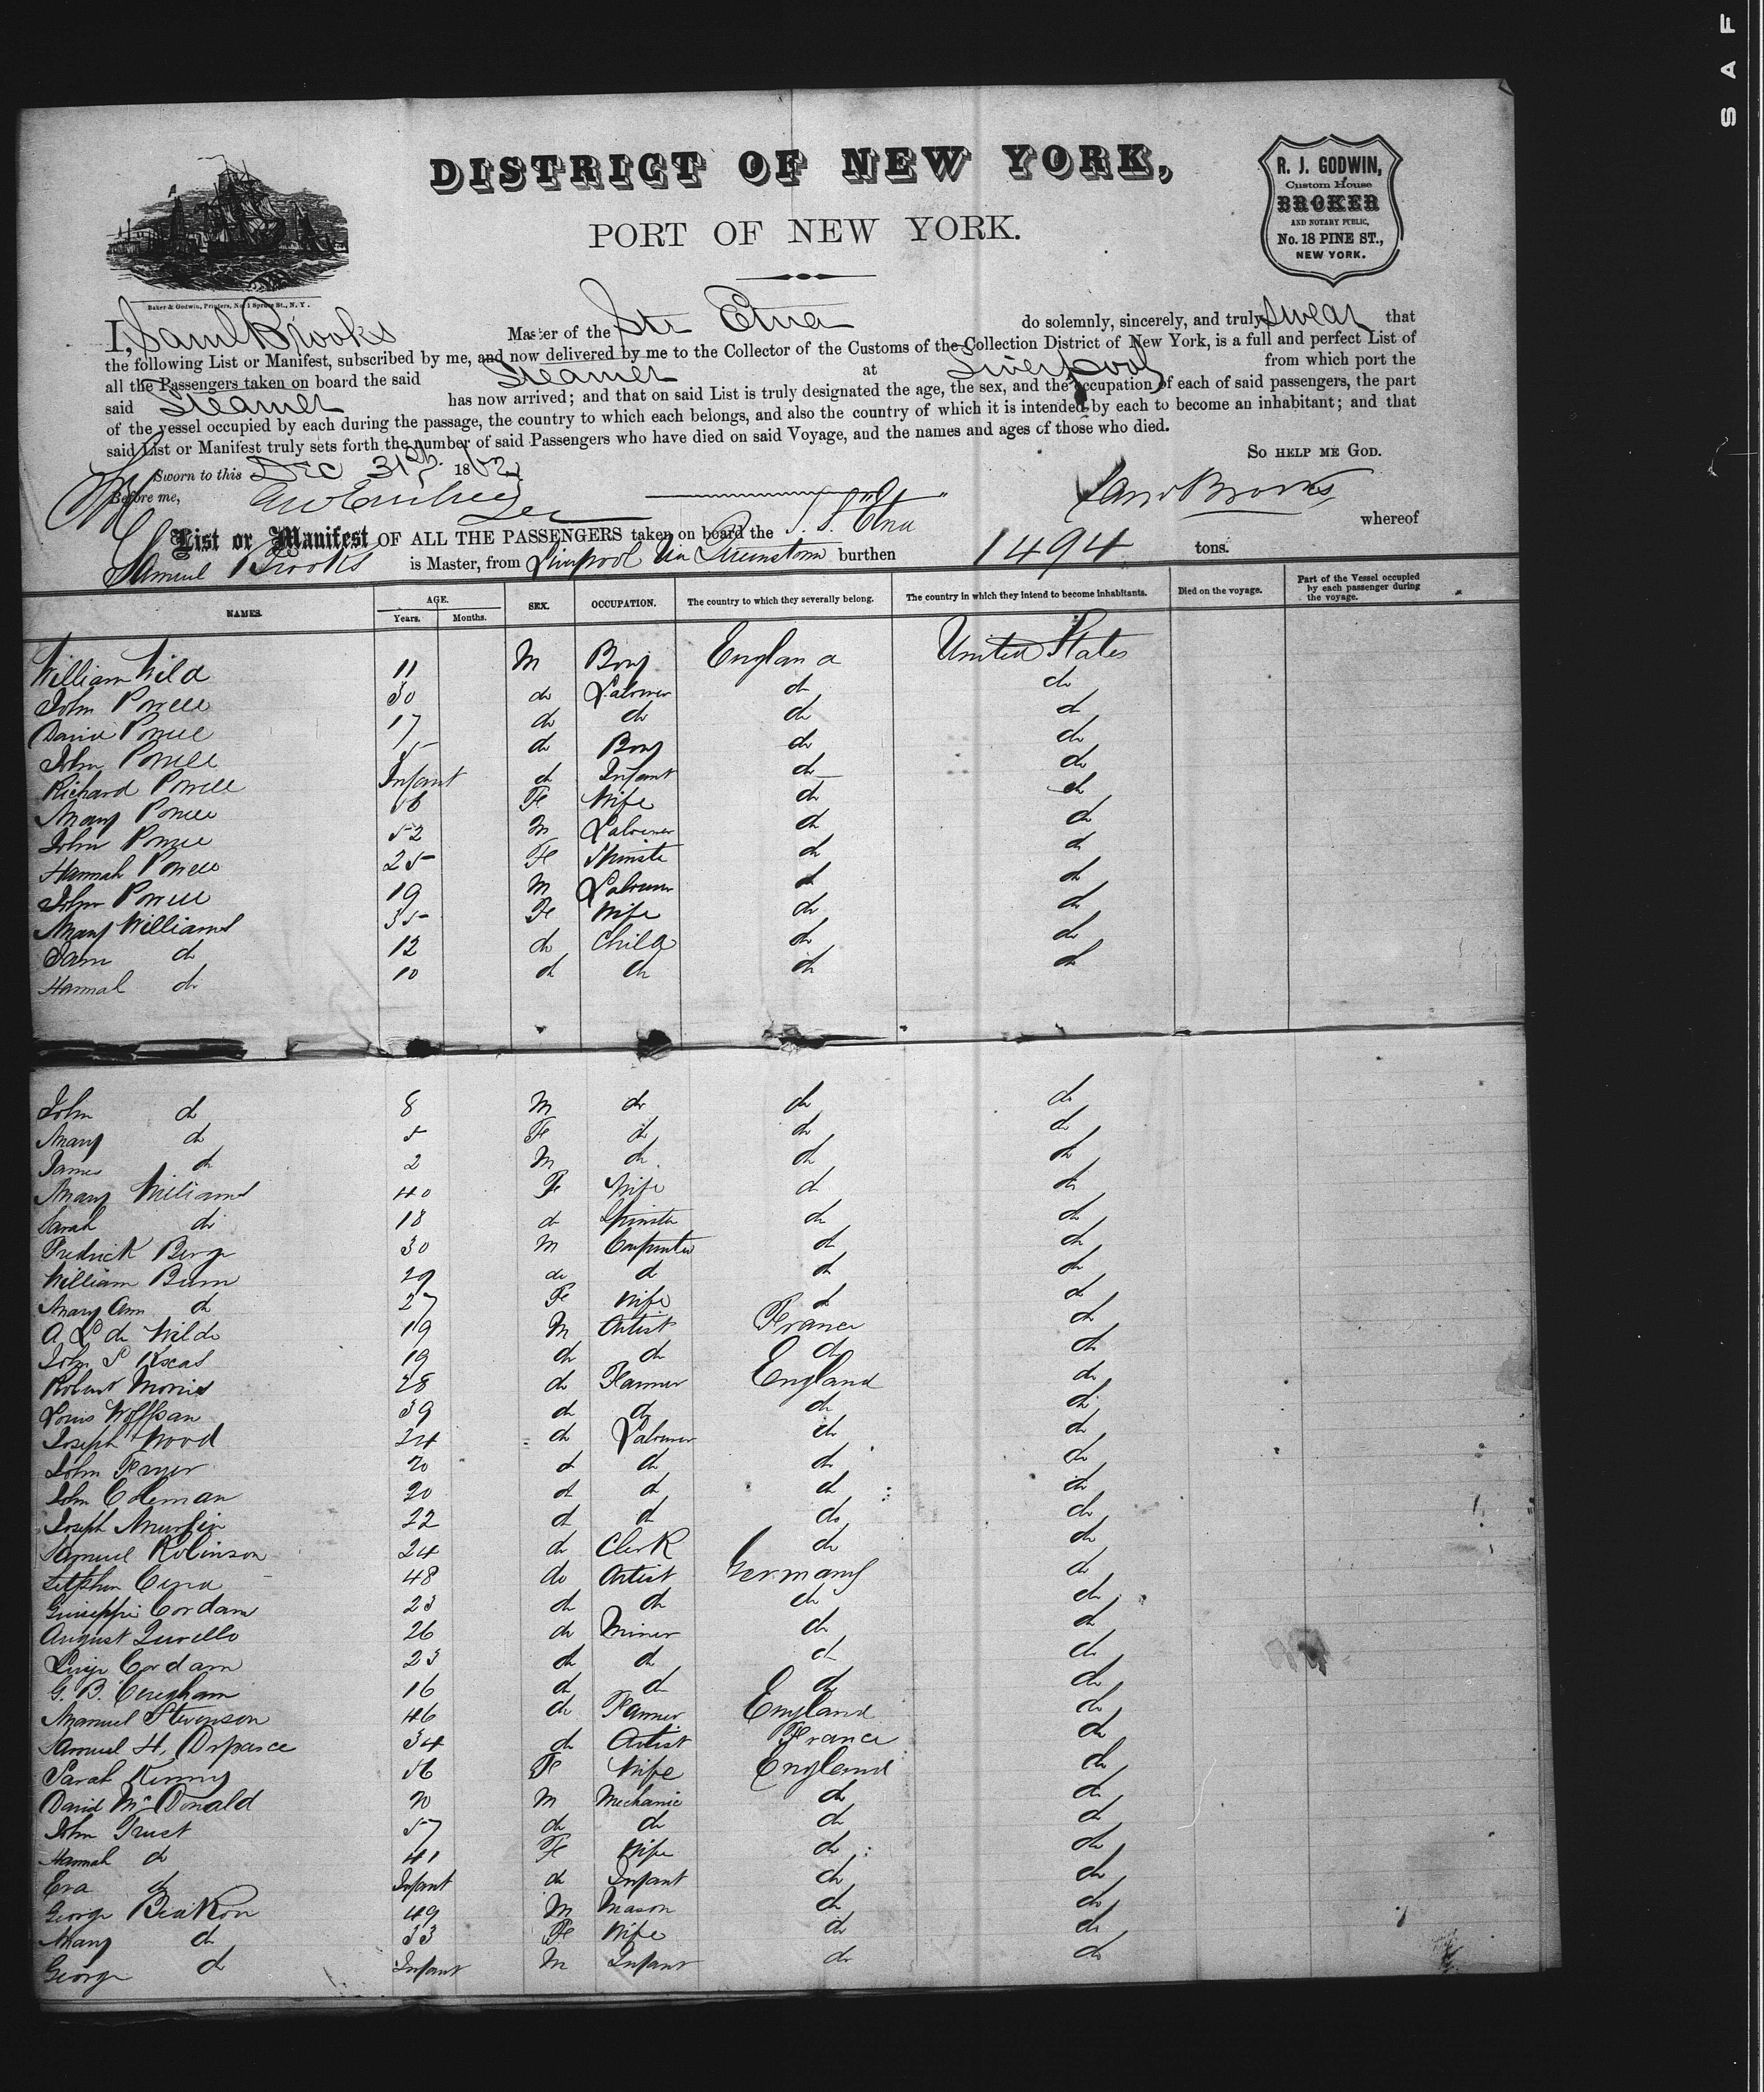 SAF
DISTRICT OF NEW YORK,
PORT OF NEW YORK.
R. J. GODWIN,
Custom House
BROKER
AND NOTARY PUBLIC,
No. 18 PINE ST.,
NEW YORK.
Baker & Godwin, Printers, No. 1 Spruce St., N. Y.
I, Saml Brooks Master of the Str Etna do solemnly, sincerely, and truly swear that
the following List or Manifest, subscribed by me, and now delivered by me to the Collector of the Customs of the Collection District of New York, is a full and perfect List of
all the Passengers taken on board the said Steamer at Liverpool from which port the
said Steamer has now arrived; and that on said List is truly designated the age, the sex, and the occupation of each of said passengers, the part
of the vessel occupied by each during the passage, the country to which each belongs, and also the country of which it is intended by each to become an inhabitant; and that
said List or Manifest truly sets forth the number of said Passengers who have died on said Voyage, and the names and ages of those who died.
So help me God.
Sworn to this Dec 31st 1862
Before me,
Saml Brooks
List or Manifest OF ALL THE PASSENGERS taken on board the S. S. Etna whereof
Samuel Brooks is Master, from Liverpool Via Queenstown burthen 1494 tons.
NAMES. AGE. Years. Months. SEX. OCCUPATION. The country to which they severally belong. The country in which they intend to become inhabitants. Died on the voyage. Part of the Vessel occupied by each passenger during the voyage.
William Wild 11 M Boy England United States
John Powell 30 do Labourer do do
David Powell 17 do do do do
John Powell 5 do Boy do do
Richard Powell Infant do Infant do do
Mary Powell 18 Fe Wife do do
John Powell 52 M Labourer do do
Hannah Powell 25 Fe Spinster do do
John Powell 19 M Labourer do do
Mary Williams 35 Fe Wife do do
do 12 do Child do do
Hannah do 10 do do do do
John do 8 M do do do
Mary do 5 Fe do do do
James do 2 M do do do
Mary Williams 40 Fe Wife do do
Sarah do 18 do Spinster do do
Fredrick Berge 30 M Carpenter do do
William Burn 29 do do do do
Mary Ann do 27 Fe Wife do do
A. L. de Wilde 19 M Artist France do
John S 19 do do do do
Robert Morris 28 do Farmer England do
Louis 39 do do do do
Joseph Wood 24 do Labourer do do
John Fryer 20 do do do do
John Coleman 20 do do do do
Joseph Murfin 22 do do do do
Samuel Robinson 24 do Clerk do do
48 do Artist Germany do
Guiseppi Cordam 23 do do do do
August 26 do Miner do do
Luigi Cordam 23 do do do do
G. B. 16 do do do do
Manuel Stevenson 46 do Farmer England do
Samuel H. 34 do Artist France do
Sarah Kinny 56 Fe Wife England do
David McDonald 20 M Mechanic do do
John Trust 57 do do do do
Hannah do 41 Fe Wife do do
Eva do Infant do Infant do do
George Beakon 49 M Mason do do
Mary do 33 Fe Wife do do
George do Infant M Infant do do